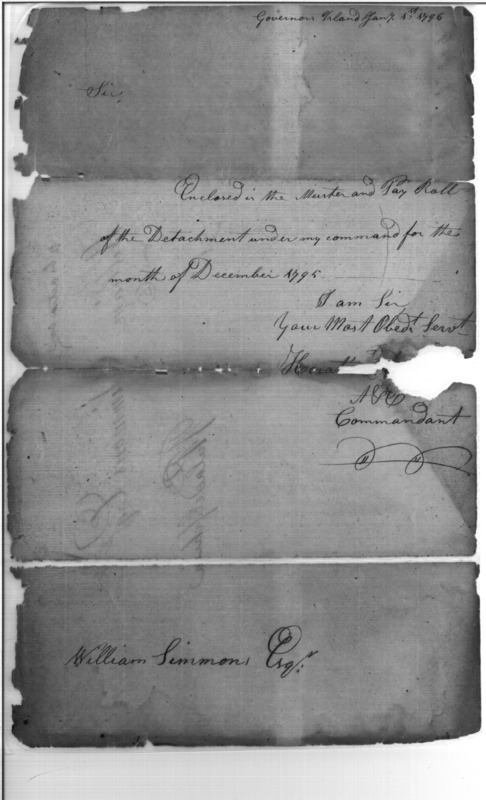 Governors Island Jany. 1st. 1796
Sir,
Enclosed is the Muster and Pay Roll
of the Detachment under my command for the
month of December 1795.
I am Sir,
Your Most Obedt. Servt
Commandant
William Simmons Esqr.
Philadelphia